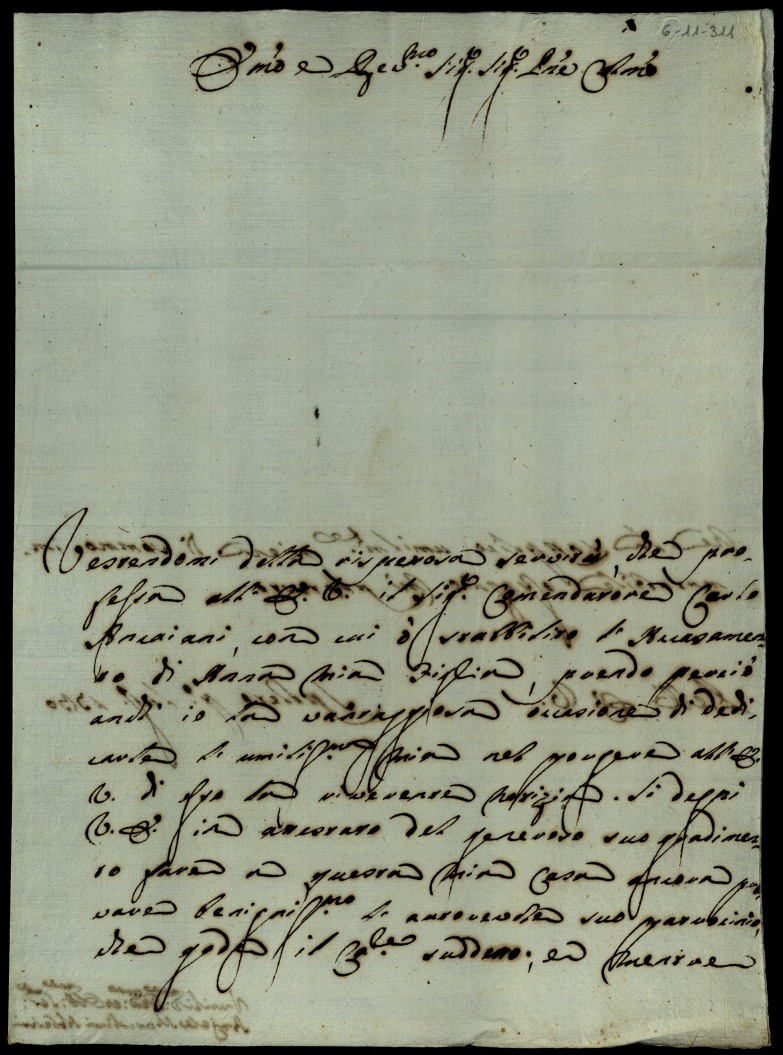 6-11-311
Emo e Rev.mo Sig.r Sig.r Pne Colmo
Vestendomi della rispetosa servitù, che pro-
fessa all' E. V. il Sig.r Comendatore Carlo
Ancaiani, con cui ò stabilito l' Accasamen-
to di Anna mia Figlia, prendo perciò
anch' io la vantaggiosa occasione di dedi-
carle l' umiliss.ma mia nel porgere all' E.
V. di esso la riverente notizia. Si degni
V. E. in attestato del generoso suo gradimen-
to fare a questa mia Casa ancora pro-
vare benigniss.mo l' autorevole suo patrocinio,
che gode il Cav.re suddetto; ed mentre